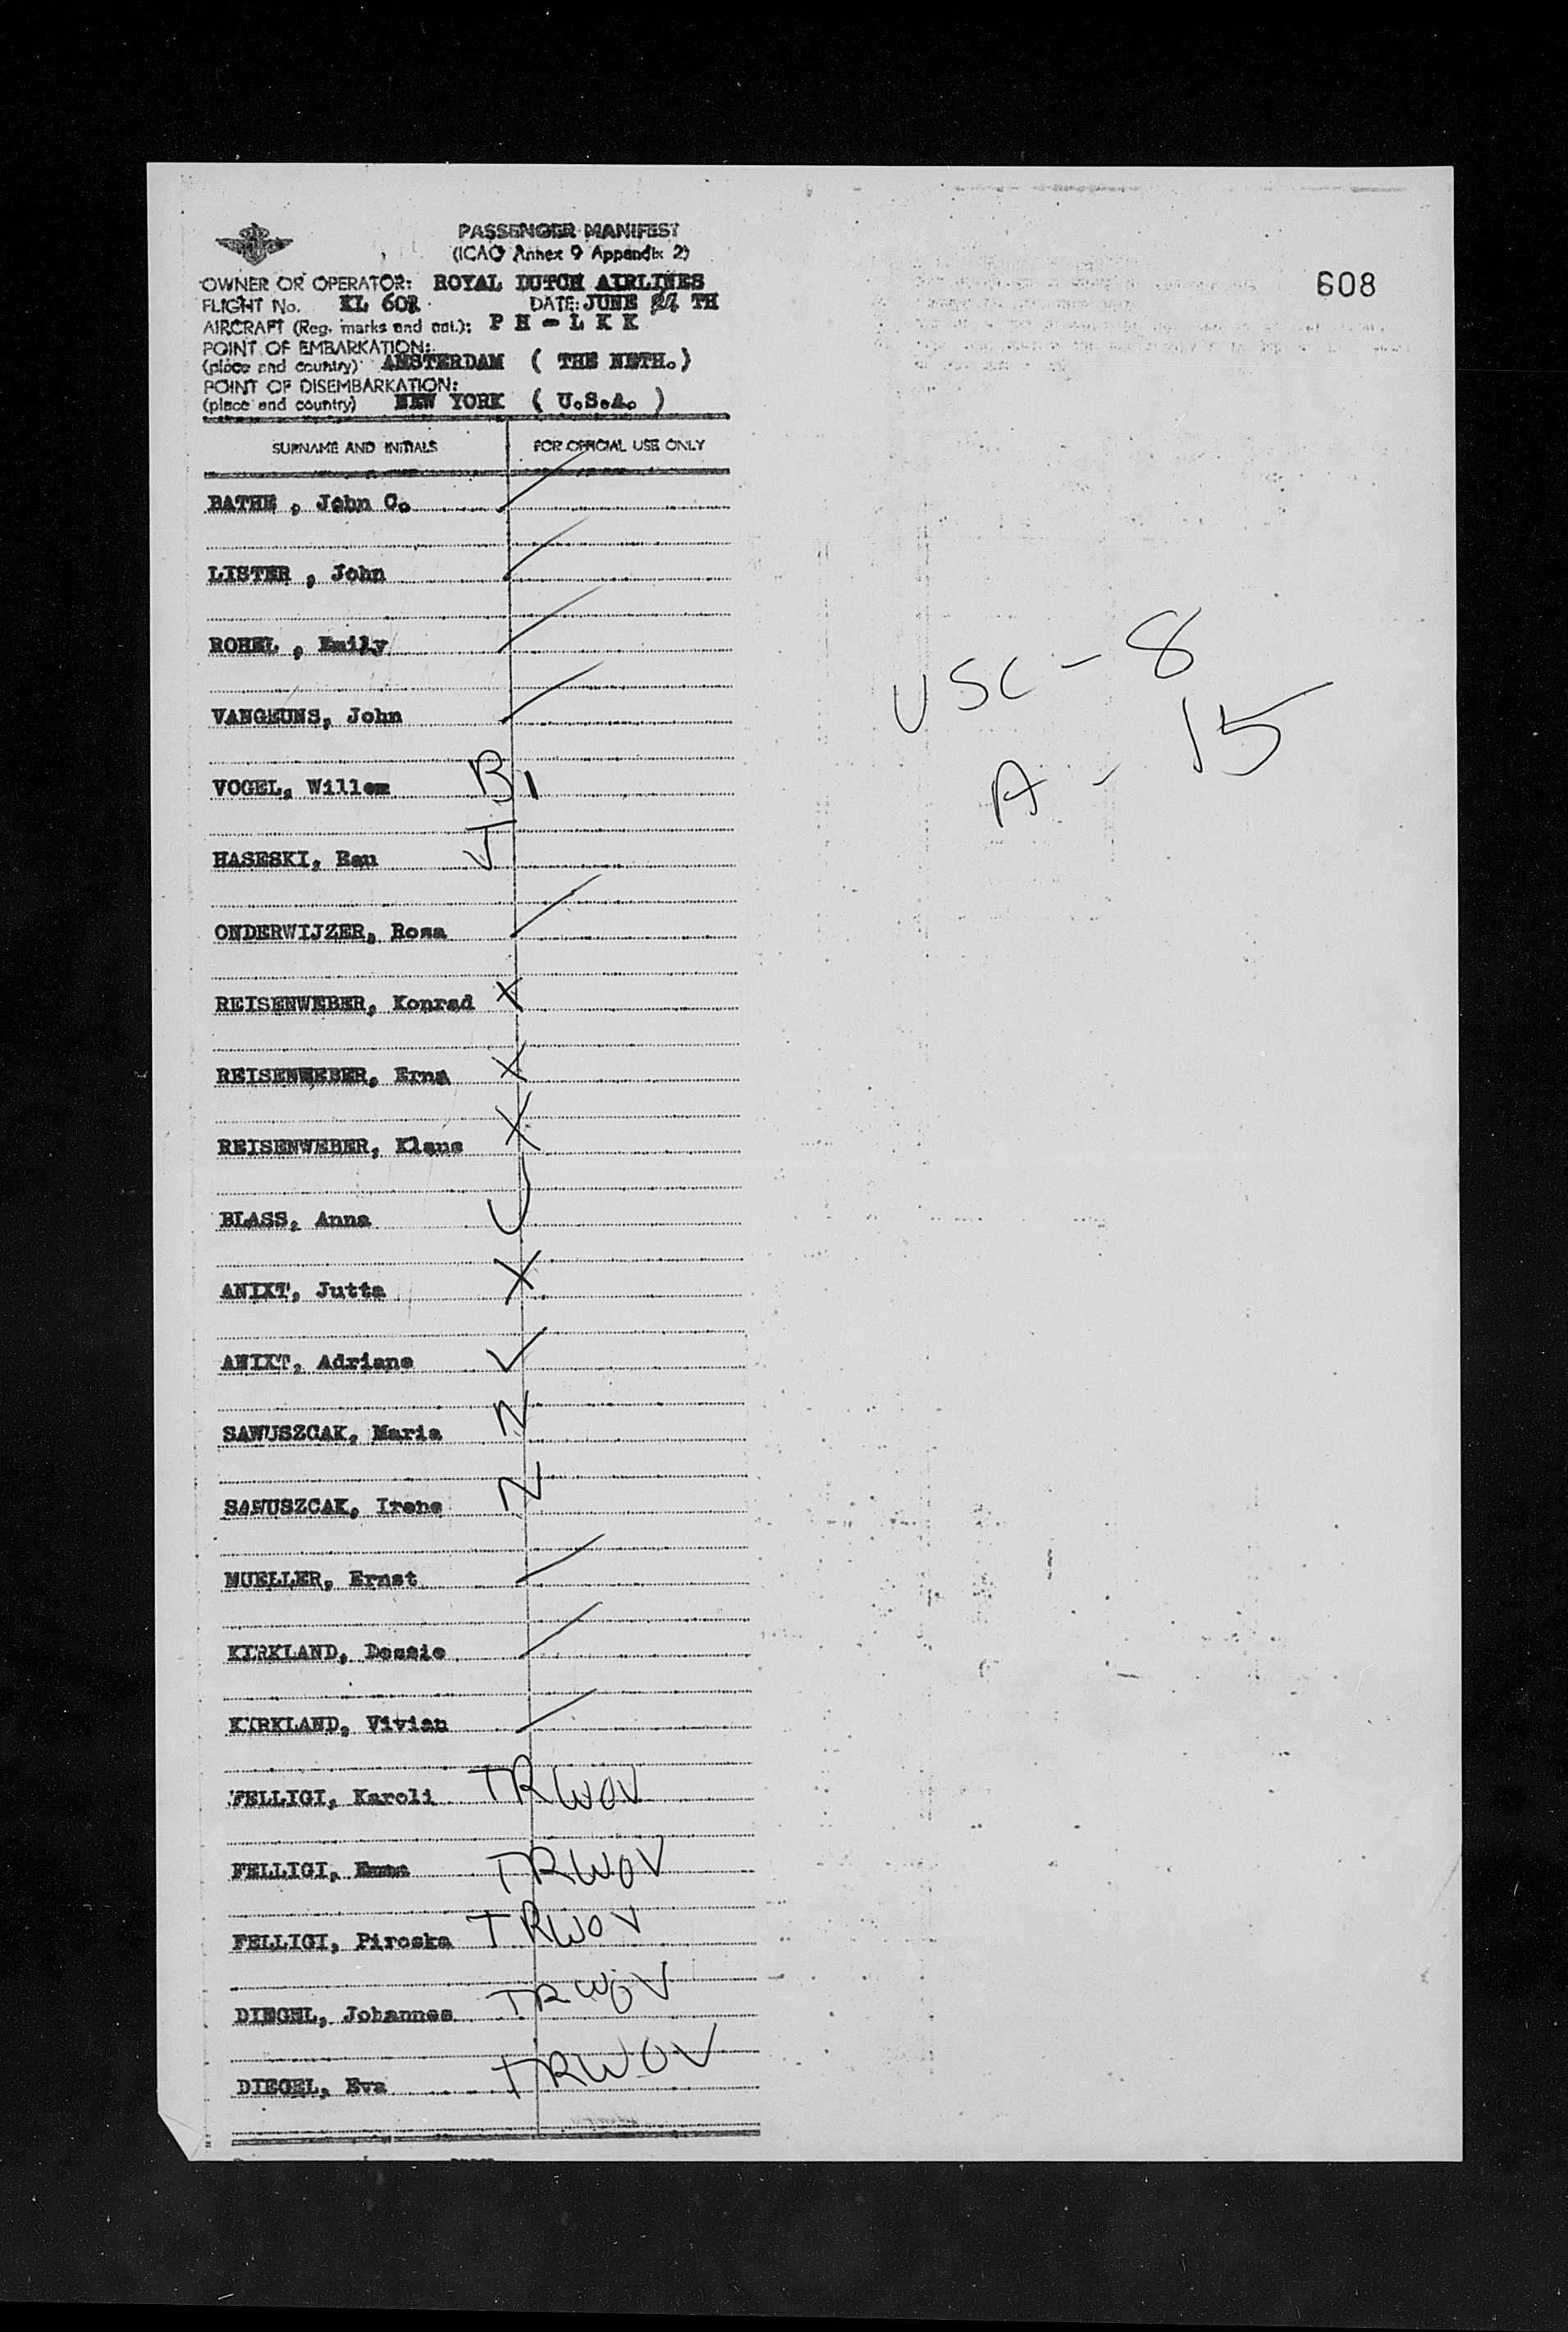 PASSENGER MANIFEST
(ICAO Annex 9 Appendix 2)
608
OWNER OR OPERATOR: ROYAL DUTCH AIRLINES
FLIGHT No. KL 602 DATE: JUNE TH
AIRCRAFT (Reg. marks and nat.): P H - L K K
POINT OF EMBARKATION:
(place and country) AMSTERDAM ( THE NETH.)
POINT OF DISEMBARKATION:
(place and country) NEW YORK ( U.S.A. )
SURNAME AND INITIALS FOR OFFICIAL USE ONLY
BATHE , John C.
LISTER , John
ROHEL , Emily
USC - 8
VANGEUNS, John
A - 15
VOGEL, Willem B1
HASESKI, Eau J
ONDERWIJZER, Rosa
REISENWEBER, Konrad X
REISENWEBER, Erna X
REISENWEBER, Klaus X
BLASS, Anna
ANIXT, Jutta X
ANIXT, Adriane
SAWUSZCAK, Maria N
SAWUSZCAK, Irene N
MUELLER, Ernst
KIRKLAND, Dessie
KIRKLAND, Vivian
FELLIGI, Karoli TRWOV
FELLIGI, Emma TRWOV
FELLIGI, Piroska TRWOV
DIEGEL, Johannes TRWOV
DIEGEL, Eva TRWOV